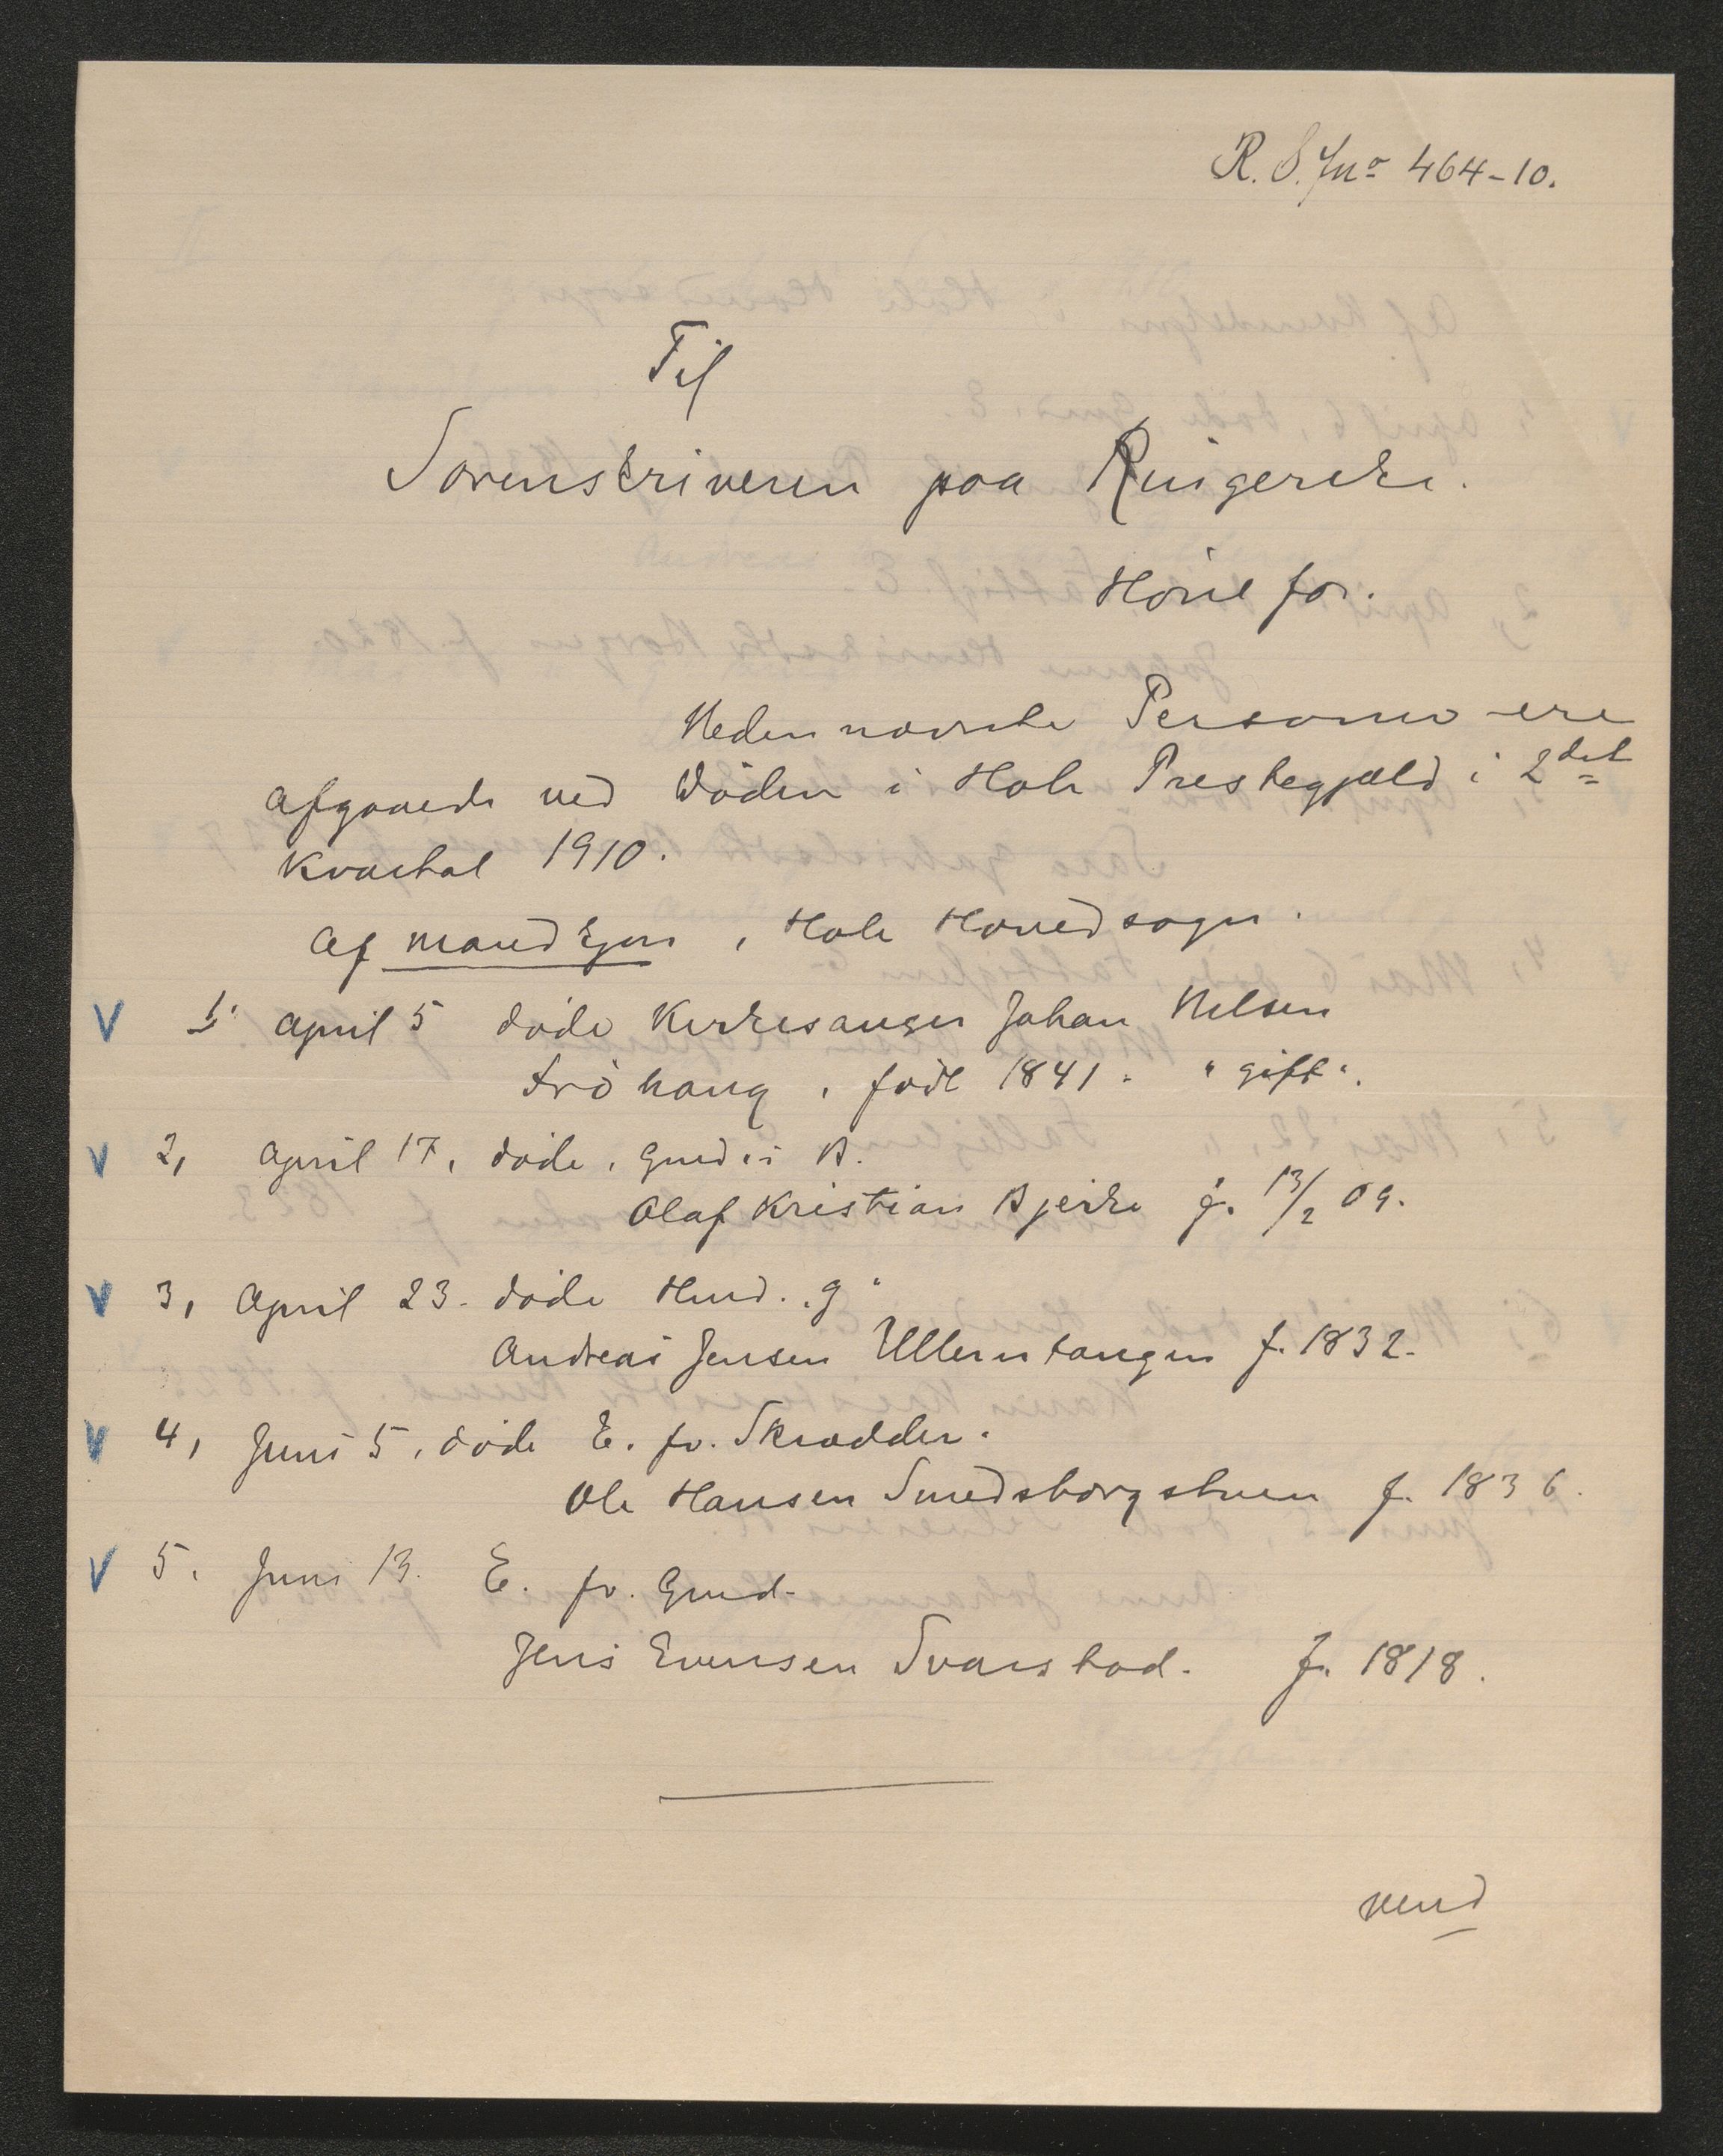 R. S. Jno 464-10.
Til
Sorenskriveren paa Ringerike.
Hönefos.
Nedennævnte Personer ere
afgaaede ved Döden i Hole Prestegjæld i 2det
Kvartal 1910.
Af Mandkjøn, Hole Hovedsogn.
V 1, April 5 döde Kirkesanger Johan Nilsen
Fröhaug, födt 1841. "gift".
V 2, April 17, döde, Gmd.s B.
Olaf Kristian Bjerke f. 13/2 09.
V 3, April 23. döde Hmd. "g"
Andreas Jensen Ullerntangen f. 1832.
V 4, Juni 5, döde E. fv. Skrædder.
Ole Hansen Smedsborgstuen f. 1836.
V 5. Juni 13. E. fv. Gmd.
Jens Evensen Svarstad. f. 1818.
vend